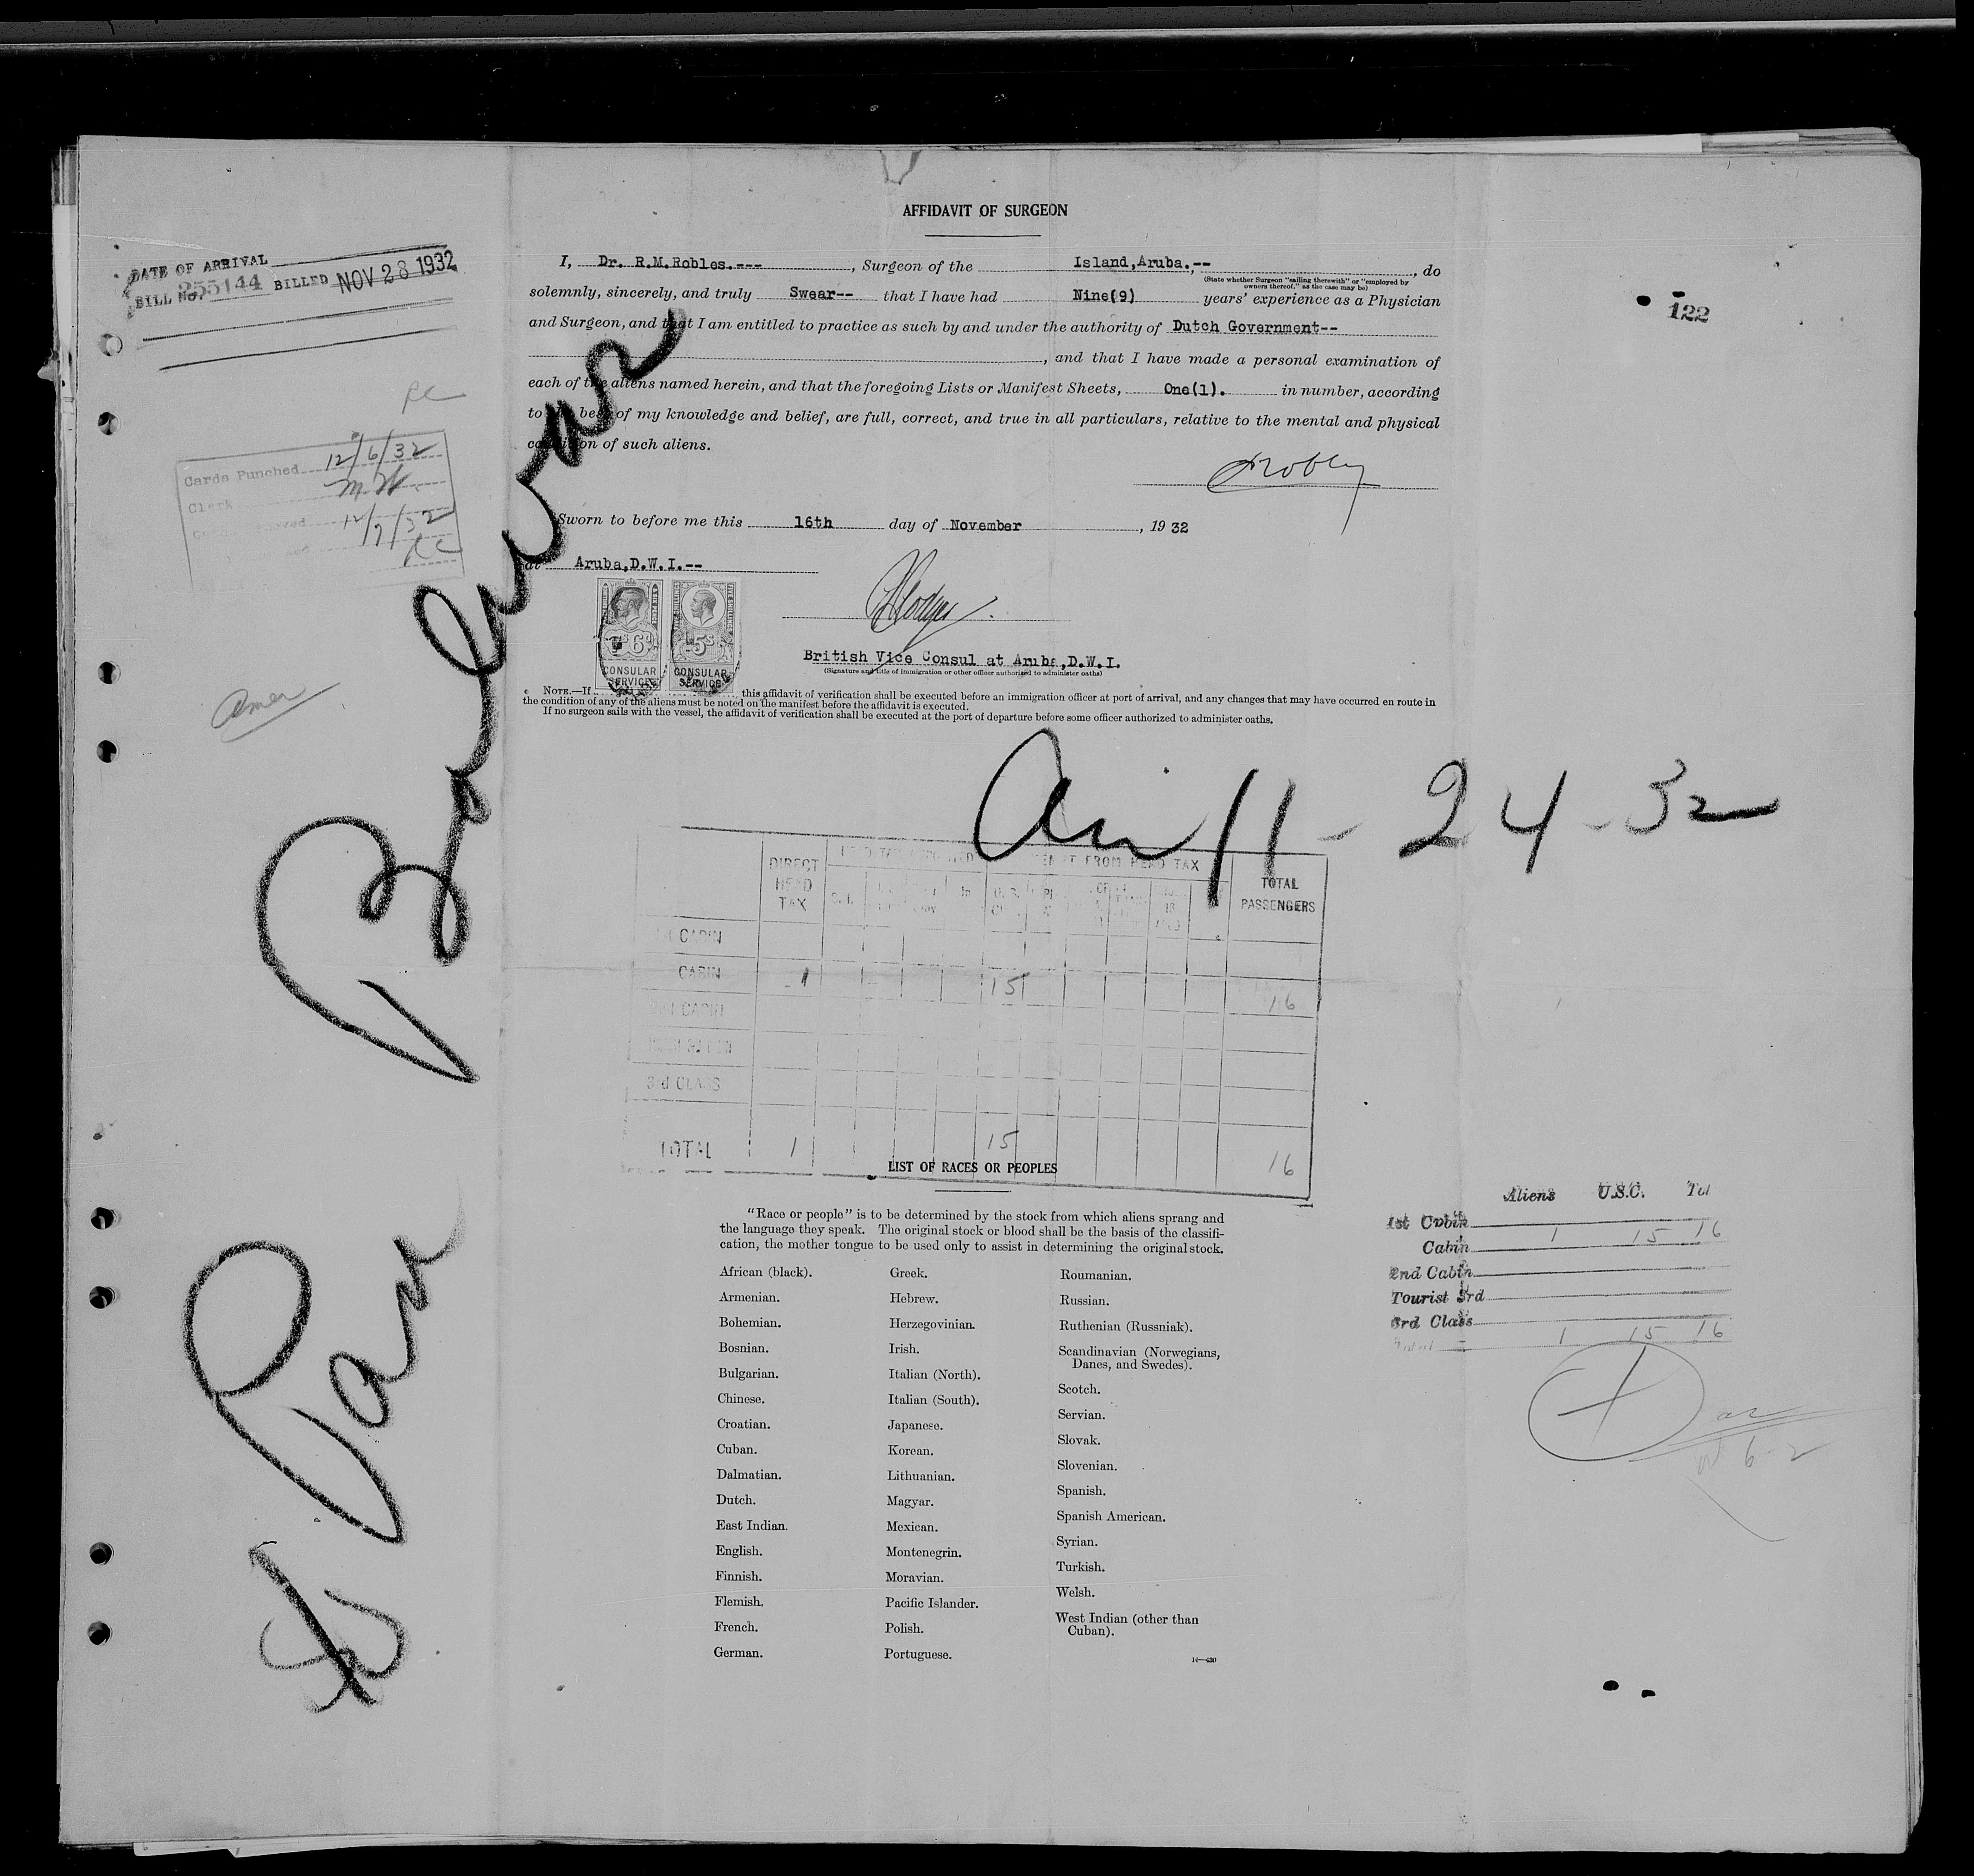 AFFIDAVIT OF SURGEON
DATE OF ARRIVAL
BILL No. 255144 BILLED NOV 28 1932
122
I, Dr. R.M.Robles.---, Surgeon of the Island,Aruba.--, do
(State whether Surgeon "sailing therewith" or "employed by
owners thereof," as the case may be)
solemnly, sincerely, and truly Swear-- that I have had Nine(9) years' experience as a Physician
and Surgeon, and that I am entitled to practice as such by and under the authority of Dutch Government--
, and that I have made a personal examination of
each of the aliens named herein, and that the foregoing Lists or Manifest Sheets, One(1). in number, according
to the best of my knowledge and belief, are full, correct, and true in all particulars, relative to the mental and physical
condition of such aliens.
Cards Punched 12/6/32
Clerk
12/7/32
Sworn to before me this 16th day of November, 19 32
at Aruba,D.W.I.--
6d 5s
CONSULAR SERVICE
CONSULAR SERVICE
British Vice Consul at Aruba,D.W.I.
(Signature and title of immigration or other officer authorized to administer oaths)
NOTE.—If this affidavit of verification shall be executed before an immigration officer at port of arrival, and any changes that may have occurred en route in
the condition of any of the aliens must be noted on the manifest before the affidavit is executed.
If no surgeon sails with the vessel, the affidavit of verification shall be executed at the port of departure before some officer authorized to administer oaths.
11-24-32
DIRECT HEAD TAX
FROM HEAD TAX
TOTAL PASSENGERS
CABIN
CABIN 1 15 16
CABIN
3rd CLASS
TOTAL 1 15 16
LIST OF RACES OR PEOPLES
"Race or people" is to be determined by the stock from which aliens sprang and
the language they speak. The original stock or blood shall be the basis of the classifi-
cation, the mother tongue to be used only to assist in determining the original stock.
African (black).
Armenian.
Bohemian.
Bosnian.
Bulgarian.
Chinese.
Croatian.
Cuban.
Dalmatian.
Dutch.
East Indian.
English.
Finnish.
Flemish.
French.
German.
Greek.
Hebrew.
Herzegovinian.
Irish.
Italian (North).
Italian (South).
Japanese.
Korean.
Lithuanian.
Magyar.
Mexican.
Montenegrin.
Moravian.
Pacific Islander.
Polish.
Portuguese.
Roumanian.
Russian.
Ruthenian (Russniak).
Scandinavian (Norwegians,
Danes, and Swedes).
Scotch.
Servian.
Slovak.
Slovenian.
Spanish.
Spanish American.
Syrian.
Turkish.
Welsh.
West Indian (other than
Cuban).
Aliens U.S.C. Tot
1st Cabin
Cabin 1 15 16
2nd Cabin
Tourist 3rd
3rd Class
1 15 16